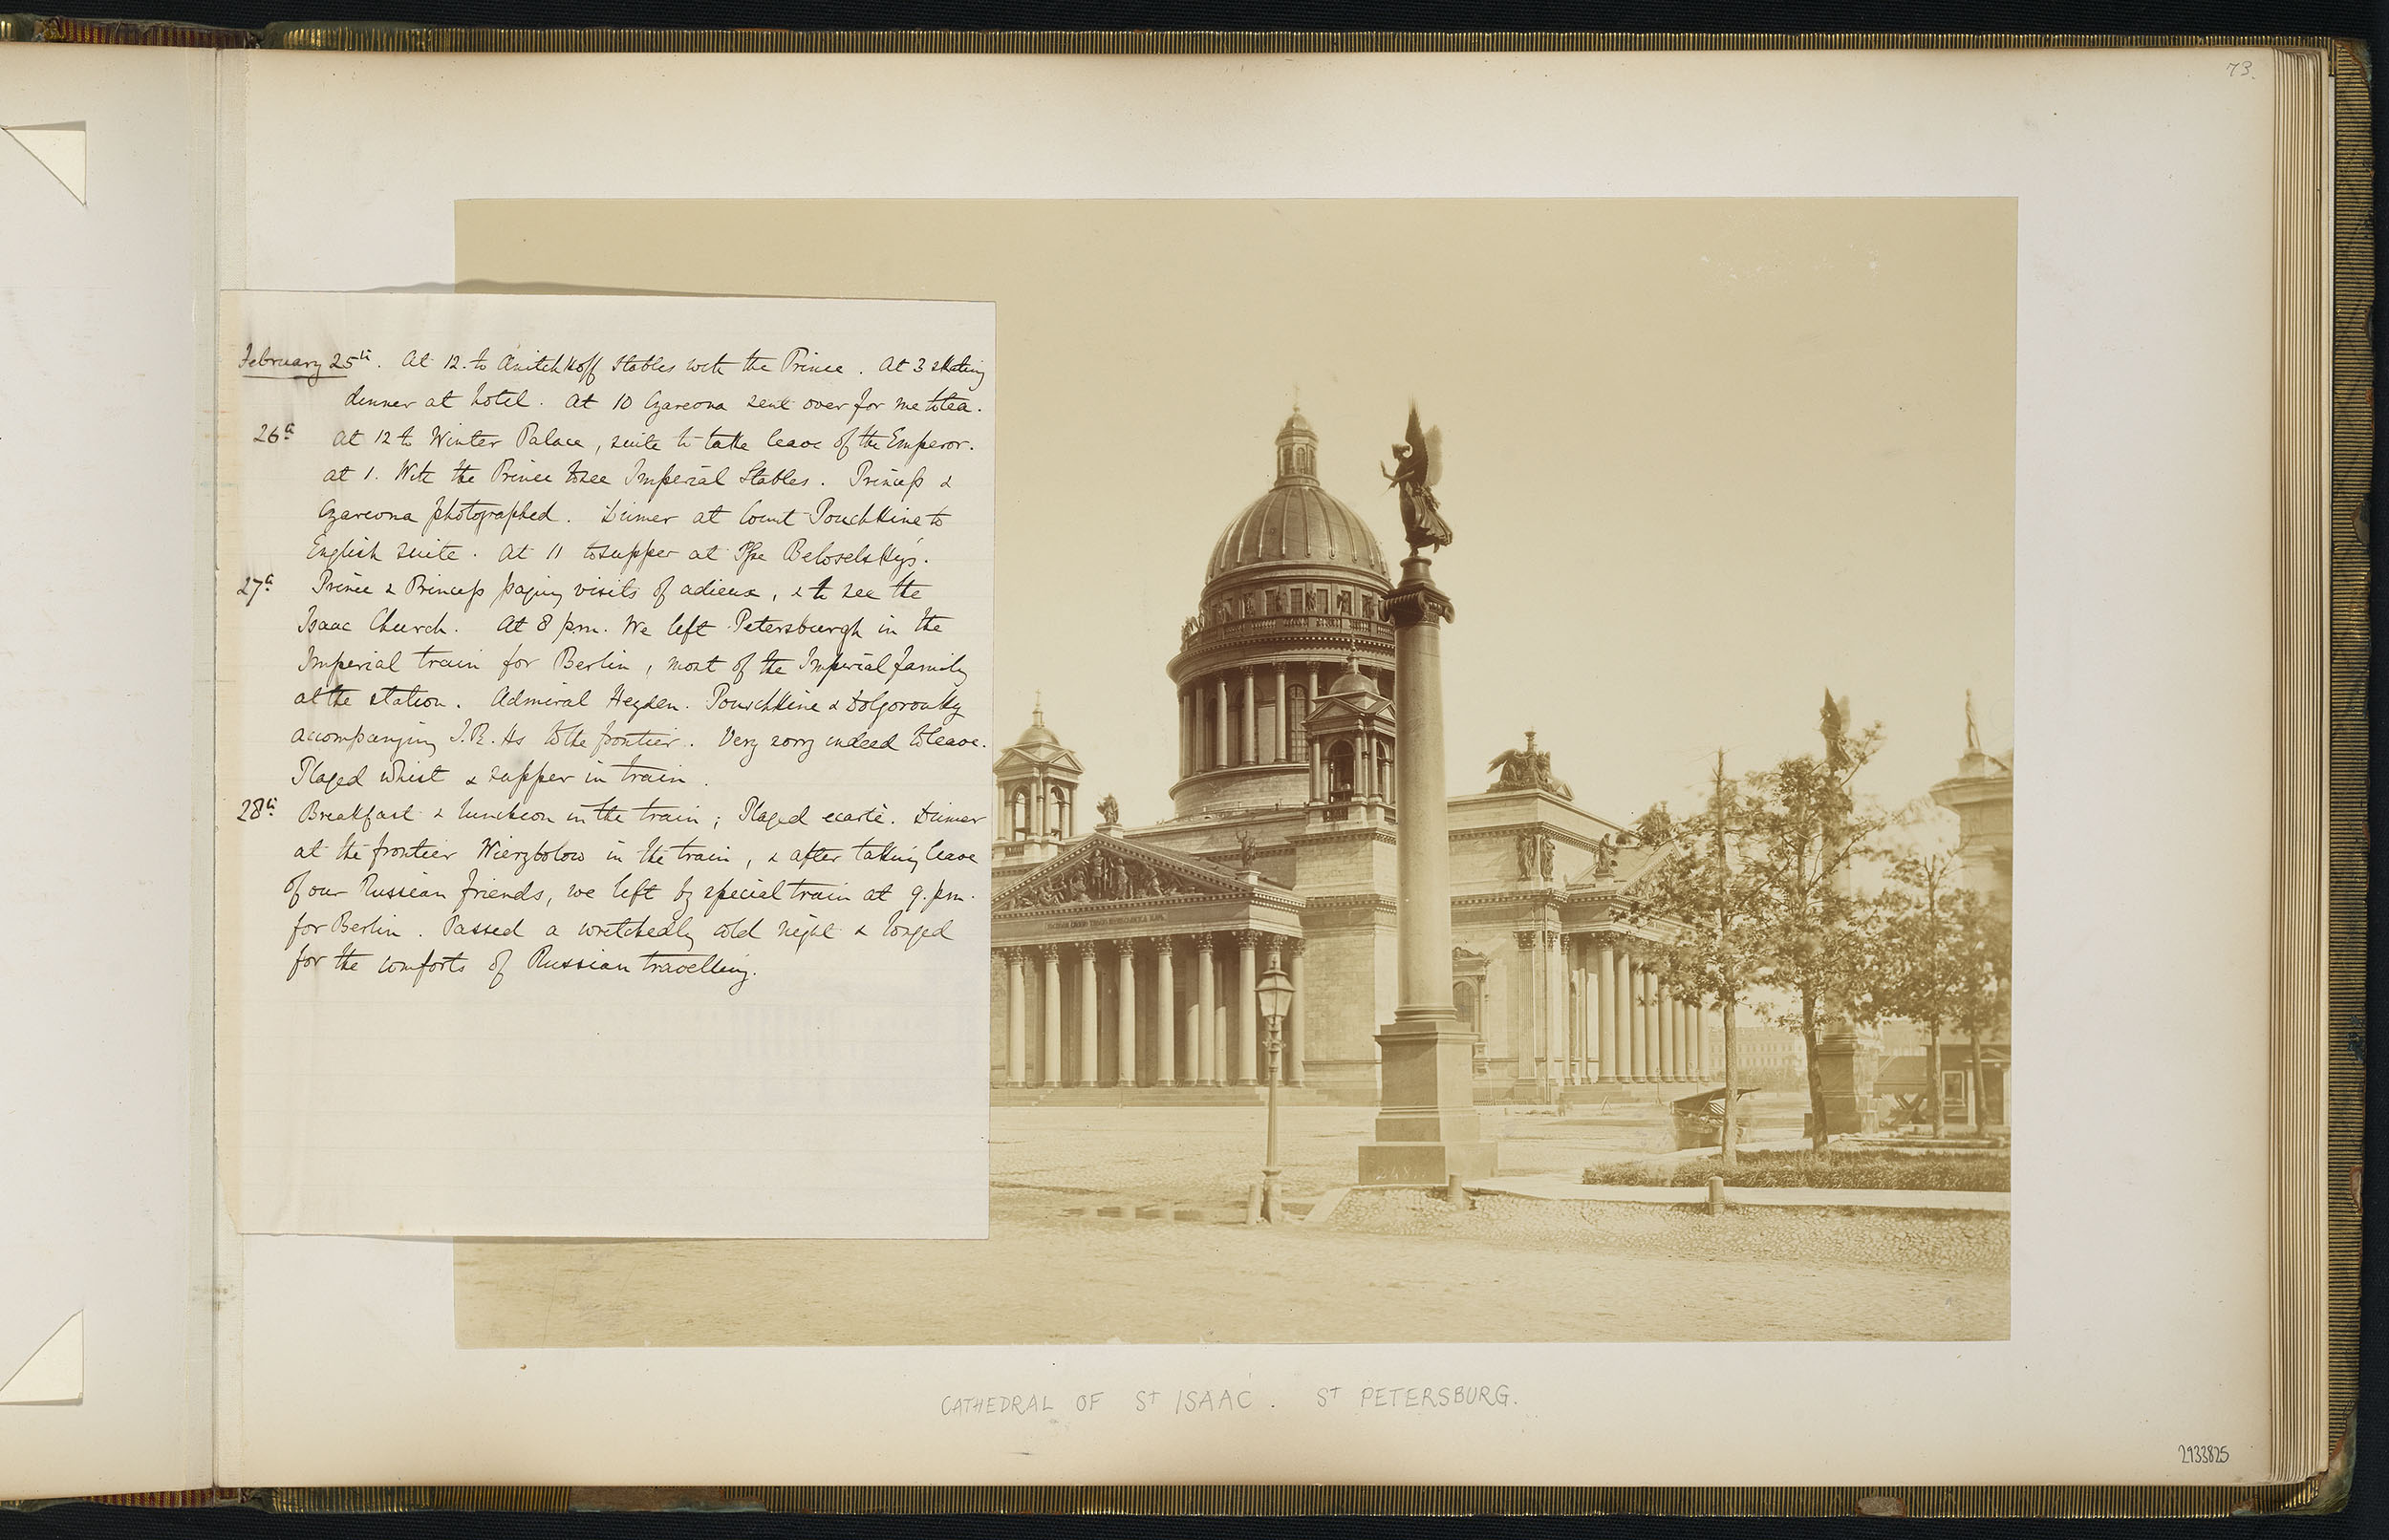 73.
February 25th. At 12. to Anitchkoff Stables with the Prince. At 3 skating
dinner at hotel. At 10 Czarevna sent over for me to tea.
26th At 12 to Winter Palace, suite to take leave of the Emperor.
at 1. With the Prince to see Imperial Stables. Princess &
Czarevna photographed. Dinner at Count Pouchkine to
English suite. At 11 to supper at Pss Beloselsky's.
27th Prince & Princess paying visits of adieux, & to see the
Isaac Church. At 8 p.m. We left Petersburgh in the
Imperial train for Berlin, most of the Imperial family
at the station. Admiral Heyden. Pouschkine & Dolgorouky
accompanying T.R.Hs to the frontier. Very sorry indeed to leave.
Played whist & supper in train.
28th Breakfast & luncheon in the train; Played ecarté. Dinner
at the frontier Wierzbolow in the train, & after taking leave
of our Russian friends, we left by special train at 9. p.m.
for Berlin. Passed a wretchedly cold night & longed
for the comforts of Russian travelling.
248
CATHEDRAL OF ST ISAAC. ST PETERSBURG.
2933825